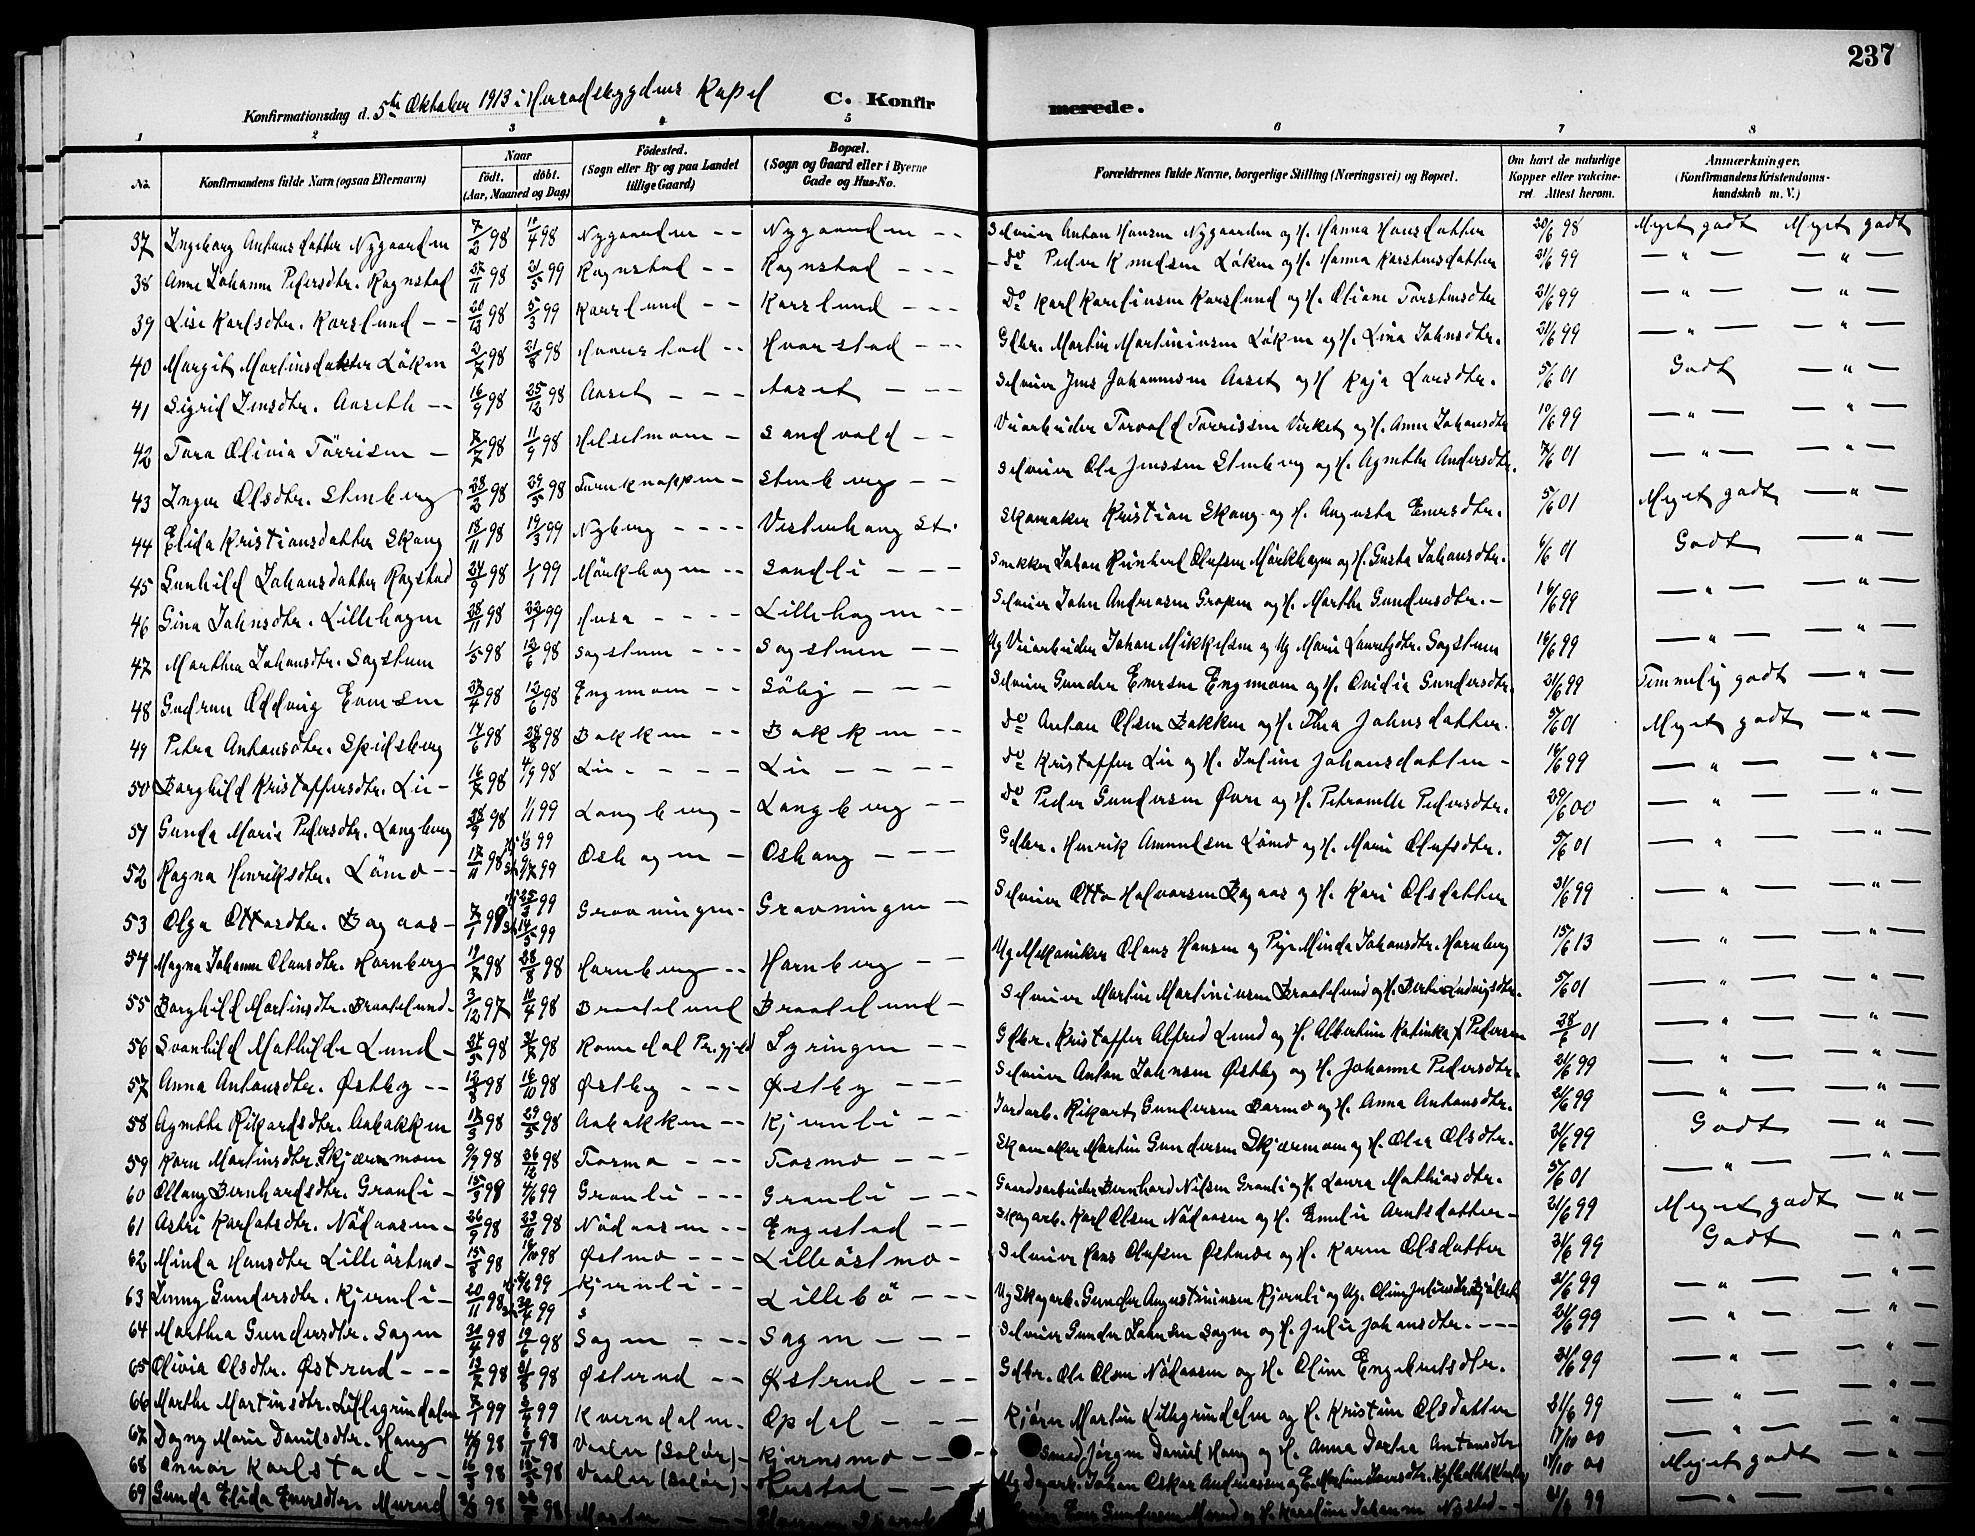 237
Konfirmationsdag d. 5te Oktober 1913 i Heradsbygdens Kapel C. Konfirmerede.
1 2 3 4 5 6 7 8
No. Konfirmandens fulde Navn (ogsaa Efternavn) Naar født. døbt. (Aar, Maaned og Dag) Födested. (Sogn eller By og paa Landet tillige Gaard) Bopæl. (Sogn og Gaard eller i Byerne Gade og Hus-No. Forældrenes fulde Navne, borgerlige Stilling (Næringsvei) og Bopæl. Om havt de naturlige Kopper eller vakcineret. Attest herom. Anmærkninger. (Konfirmandens Kristendomskundskab m. V.)
37 Ingeborg Antonsdatter Nygaarden 7/2 98 10/4 98 Nygaarden -- Nygaarden -- Selveier Anton Hansen Nygaarden og H. Hanna Hansdatter 20/6 98 Meget godt Meget godt
38 Anne Johanne Pedersdtr. Rognstad 27/11 98 21/5 99 Rognstad -- Rognstad --- - do Peder Knudsen Løken og H. Hanna Karstensdatter 21/6 99 — " — — " —
39 Lise Karlsdtr. Korslund -- 20/12 98 5/3 99 Korslund -- Korslund --- Do Karl Karelinsen Korslund og H. Oliane Torstensdtr 21/6 99 — " — — " —
40 Margit Martinsdatter Löken 2/7 98 21/8 98 Hvarstad -- Hvarstad --- Gbr. Martin Martiniusen Løken og H. Lina Johnsdtr. 21/6 99 — " — — " —
41 Sigrid Jensdtr. Aaseth -- 16/9 98 25/12 98 Aaset --- Aaset --- Selveier Jens Johannesen Aaset og H Kaja Larsdtr. 5/6 01 Godt — " —
42 Tora Olivia Törrisen - 2/7 98 11/9 98 Helsetmoen - Sandvold -- Veiarbeider Torvald Törrissen Virket og H. Anne Johansdtr 10/6 99 — " — — " —
43 Inger Olsdtr. Stenberg 28/2 98 29/5 98 Furuknappen - Stenberg -- Selveier Ole Jenssen Stenberg og H. Agnethe Andersdtr. 7/6 01 — " — — " —
44 Elida Kristiansdatter Skaug 18/11 98 19/3 99 Nyberg ---- Vesterhaug St. Skomaker Kristian Skaug og H. Augusta Emersdtr. 5/6 01 Meget godt — " —
45 Gunhild Johansdatter Rogstad 24/9 98 1/1 99 Mörkhagen -- Sandli --- Snekker Johan Reinhard Olufsen Mörkhagen og H. Gusta Johansdtr. 6/6 01 Godt — " —
46 Gina Johnsdtr. Lillehagen 28/11 98 22/1 99 Husa ---- Lillehagen -- Selveier John Andreasen Gropen og H. Marthe Gundersdtr. - 16/6 99 — " — — " —
47 Marthea Johansdtr. Sagstuen 1/5 98 12/6 98 Sagstuen -- Sagstuen -- Ug Veiarbeider Johan Mikkelsen og Ug Marie Lauritzdtr. Sagstuen 16/6 99 — " — — " —
48 Gudrun Oddvig Evensen 27/4 98 12/6 98 Engmoen -- Söby --- Selveier Gunder Emersen Engmoen og H. Ovidia Gundersdtr. 21/6 99 Temmelig godt — " —
49 Petra Antonsdtr. Spidsberg 17/6 98 28/8 98 Bakken -- Bakken -- Do Anton Olsen Bakken og H. Thea Johnsdatter. 5/6 01 Meget godt — " —
50 Borghild Kristoffersdtr. Lie - 16/7 98 4/9 98 Lie ---- Lie ---- do Kristoffer Lie og H. Juline Johansdatter - 16/6 99 — " — — " —
51 Gunda Marie Pedersdtr. Langberg 28/9 98 1/1 99 Langberg - Langberg -- do Peder Gundersen Øvre og H. Petronelle Pedersdtr. 29/6 00 — " — — " —
52 Ragna Henriksdtr. Lömo -- 17/11 98 Oshagen - Oshaug --- Gbr. Henrik Amundsen Lömo og H. Marie Olufsdtr. 5/6 01 — " — — " —
53 Olga Ottosdtr. Bagaas - 7/1 99 14/5 99 Gravningen - Gravningen -- Selveier Otto Halvorsen Bagaas og H. Kari Olsdatter 21/6 99 — " — — " —
54 Magna Johanne Olausdtr. Hornberg 12/7 98 28/8 98 Hornberg -- Hornberg -- Ug Mekaniker Olaus Hansen og Pige Minda Johansdtr. Hornberg 15/6 13 — " — — " —
55 Borghild Martinsdtr. Braatelund. 3/12 97 10/4 98 Braatelund Braatelund - Selveier Martin Martiniusen Braatelund og H. Berte Ludvigsdtr. 5/6 01 — " — — " —
56 Svanhild Mathilde Lund - 24/5 98 31/7 98 Romedal Pr.gjeld Lyringen -- Gbr. Kristoffer Alfred Lund og H. Albertine Katinka f Pedersen 28/6 01 — " — — " —
57 Anna Antonsdtr. Østby -- 12/8 98 16/10 98 Østby --- Østby --- Selveier Anton Johnsen Østby og H. Johanne Pedersdtr. 21/6 99 — " — — " —
58 Agnethe Rikardsdtr. Aabakken 17/3 98 29/5 98 Aabakken -- Kjernli -- Jordarb. Rikart Gundersen Bormo og H. Anna Antonsdtr. 21/6 99 — " — — " —
59 Karen Martinsdtr. Skjærmoen 9/9 98 26/12 98 Formo --- Formo --- Skomaker Martin Gundersen Skjærmoen og H. Olea Olsdtr. 21/6 99 Godt — " —
60 Ollaug Bernhardsdtr. Granli - 15/3 99 4/6 99 Granli --- Granli --- Gaardsarbeider Bernhard Nilsen Granli og H. Laura Mathiasdtr. 5/6 01 — " — — " —
61 Astri Karlotsdtr. Nödaasen - 26/9 98 23/10 98 Nödaasen -- Engestad -- Skogarb. Karl Olsen Nödaasen og H. Emelie Arntsdatter - 21/6 99 Meget godt — " —
62 Minda Hansdtr. Lilleöstmo - 15/8 98 16/10 98 Østmo --- Lilleöstmo - Selveier Hans Olufsen Østmoe og H. Karen Olsdatter 21/6 99 Godt — " —
63 Jenny Gundersdtr. Kjernli - 20/11 98 Kjernli --- Lillebö --- Ug Skogarb. Gunder Augustinusen Kjernli og Ug. 21/6 99 — " — — " —
64 Marthea Gundersdtr. Sagen 30/4 98 19/6 98 Sagen --- Sagen --- Selveier Gunder Johnsen Sagen og H. Julie Johansdtr. --- 21/6 99 — " — — " —
65 Olivia Olsdtr. Østerud --- 13/7 98 21/8 98 Østerud -- Østrud --- Gbr. Ole Olsen Nödaasen og H. Oline Engebretsdtr. 21/6 99 — " — — " —
66 Marthe Martinsdtr. Lillegrindalen 7/1 99 Kverndalen - Opdal --- Kjörer Martin Lillegrindalen og H. Kristine Olsdatter 21/6 99 — " — — " —
67 Dagny Marie Danielsdtr. Haug 98 98 Vaaler (Solör) - Kjernsmo -- Smed Jörgen Daniel Haug og H. Anna Dortea Antonsdtr 17/10 00 — " — — " —
68 Annar Karlstad -- 16/3 98 15/5 98 Vaaler (Solör) - Rustad -- Johan Oskar Andreassen og 17/10 00 Meget godt — " —
69 Gunda Elida Emersdtr. Morud 98 98 Moster --- Emer Gundersen Morud og H. Karoline Johanne Nysted -- 21/6 99 — " — — " —